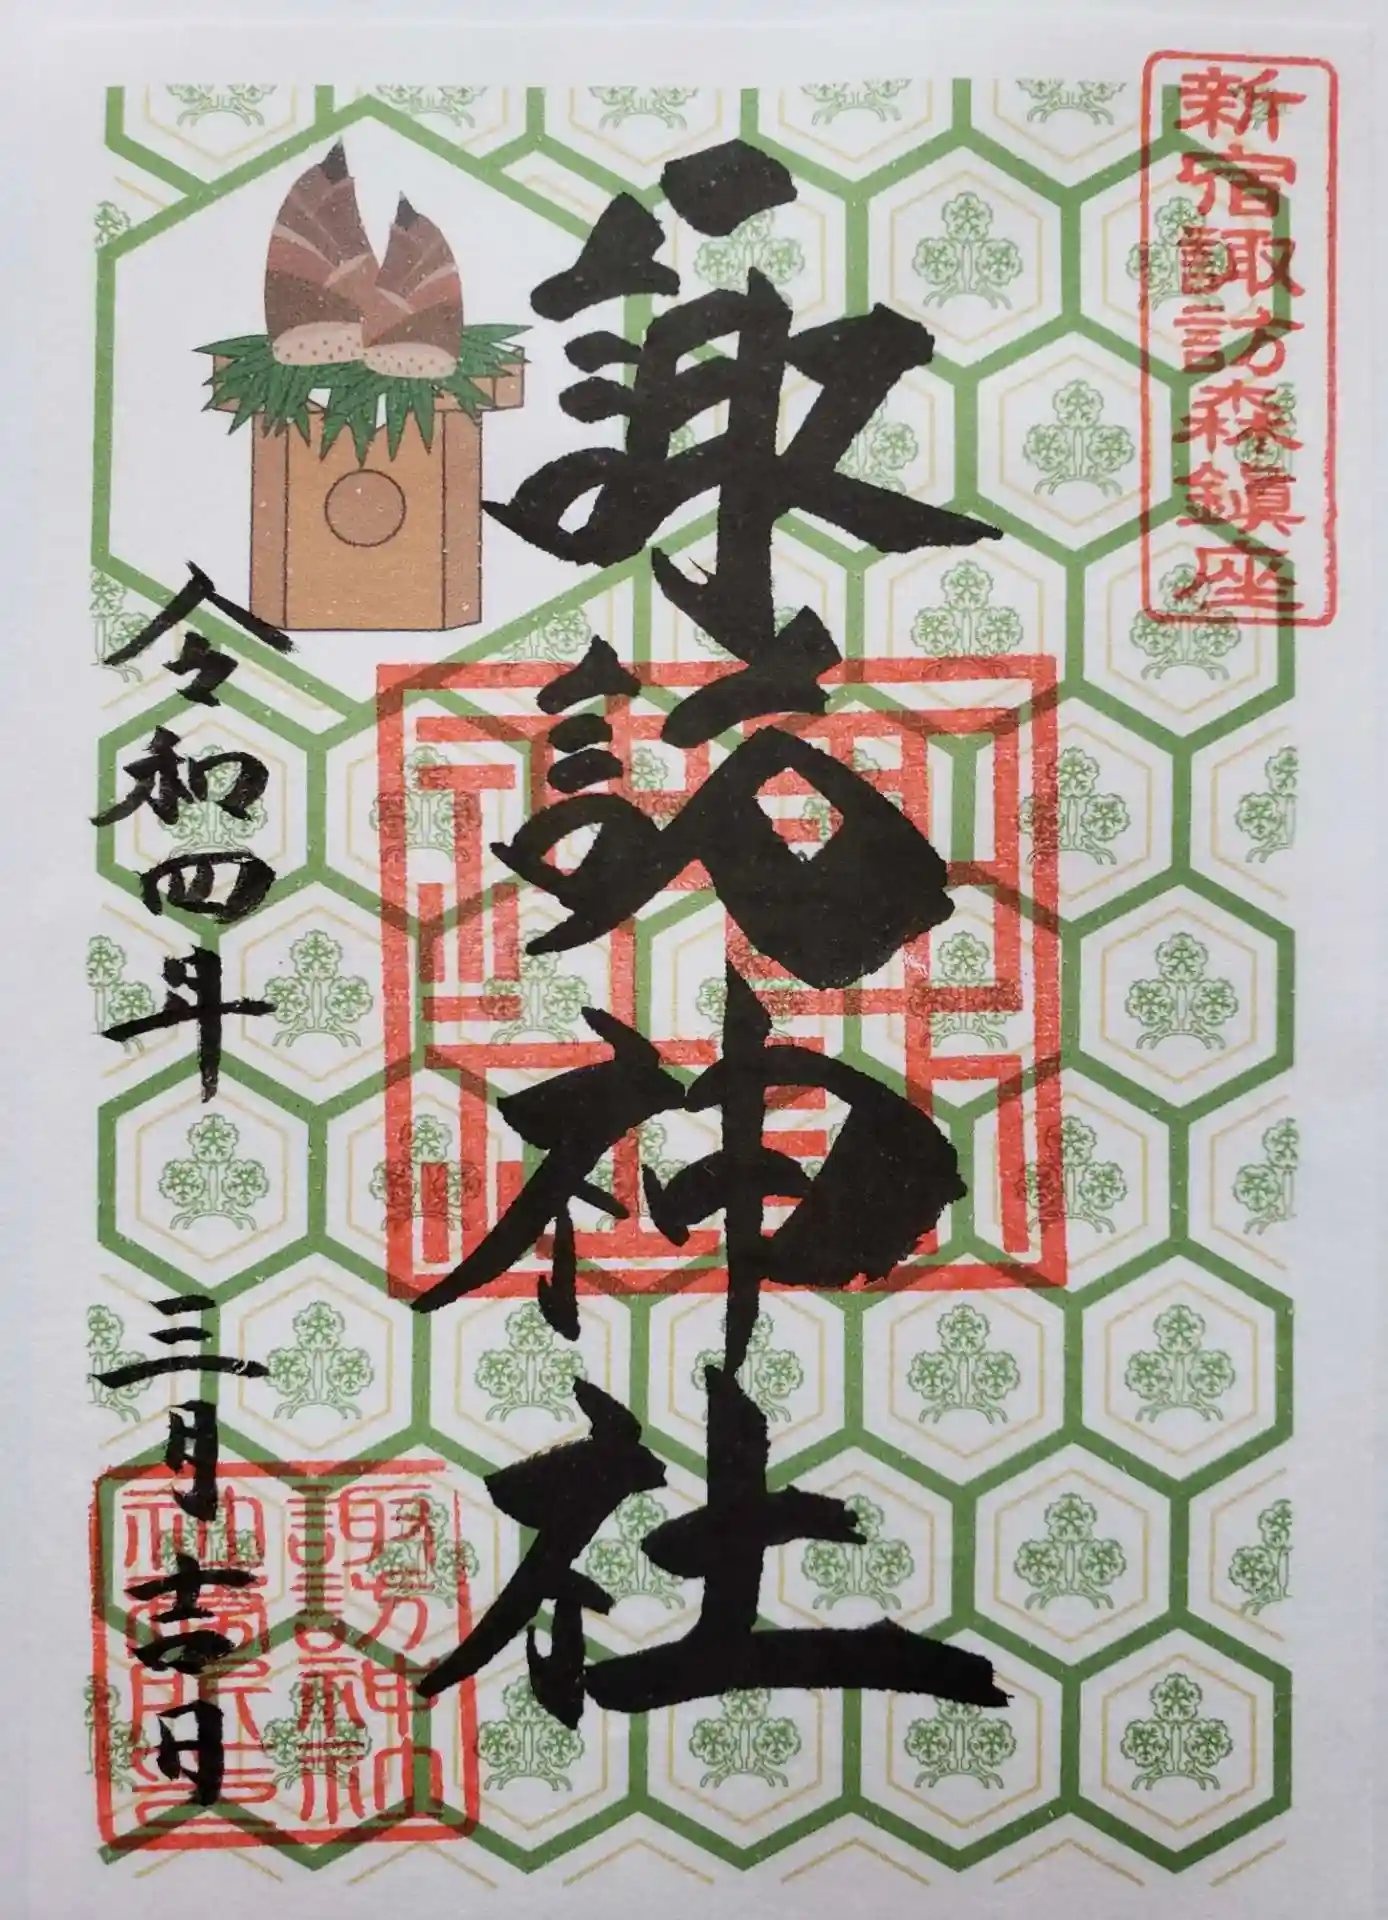 新宿諏訪森鎮座
諏訪神社
令和四年 三月吉日
諏訪神社
諏訪神
社務所